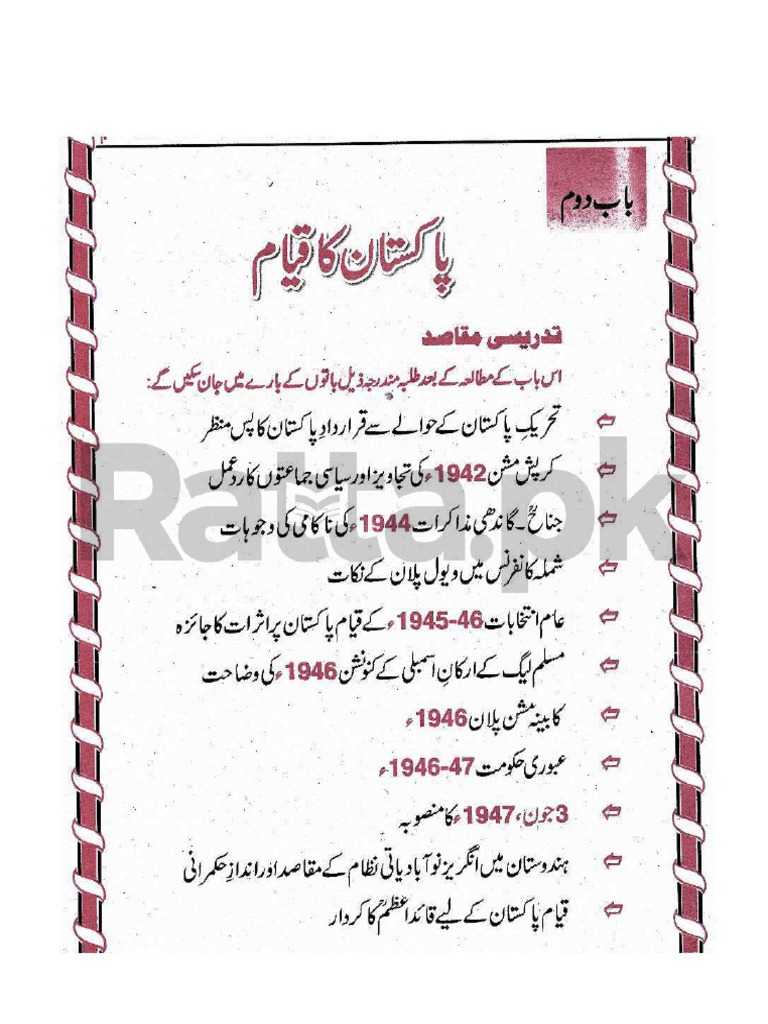 باب دوم
پاکستان کا قیام
تدریسی مقاصد
اس باب کے مطالعہ کے بعد طلبہ مندرجہ ذیل باتوں کے بارے میں جان سکیں گے:
تحریکِ پاکستان کے حوالے سے قراردادِ پاکستان کا پس منظر
کرپش مشن 1942ء کی تجاویز اور سیاسی جماعتوں کا ردعمل
جناحؒ۔ گاندھی مذاکرات 1944ء کی ناکامی کی وجوہات
شملہ کانفرنس میں ویول پلان کے نکات
عام انتخابات 46-1945ء کے قیام پاکستان پر اثرات کا جائزہ
مسلم لیگ کے ارکانِ اسمبلی کے کنونشن 1946ء کی وضاحت
کابینہ مشن پلان 1946ء
عبوری حکومت 47-1946ء
3 جون، 1947ء کا منصوبہ
ہندوستان میں انگریز نوآبادیاتی نظام کے مقاصد اور اندازِ حکمرانی
قیام پاکستان کے لیے قائداعظمؒ کا کردار
Ratta.pk